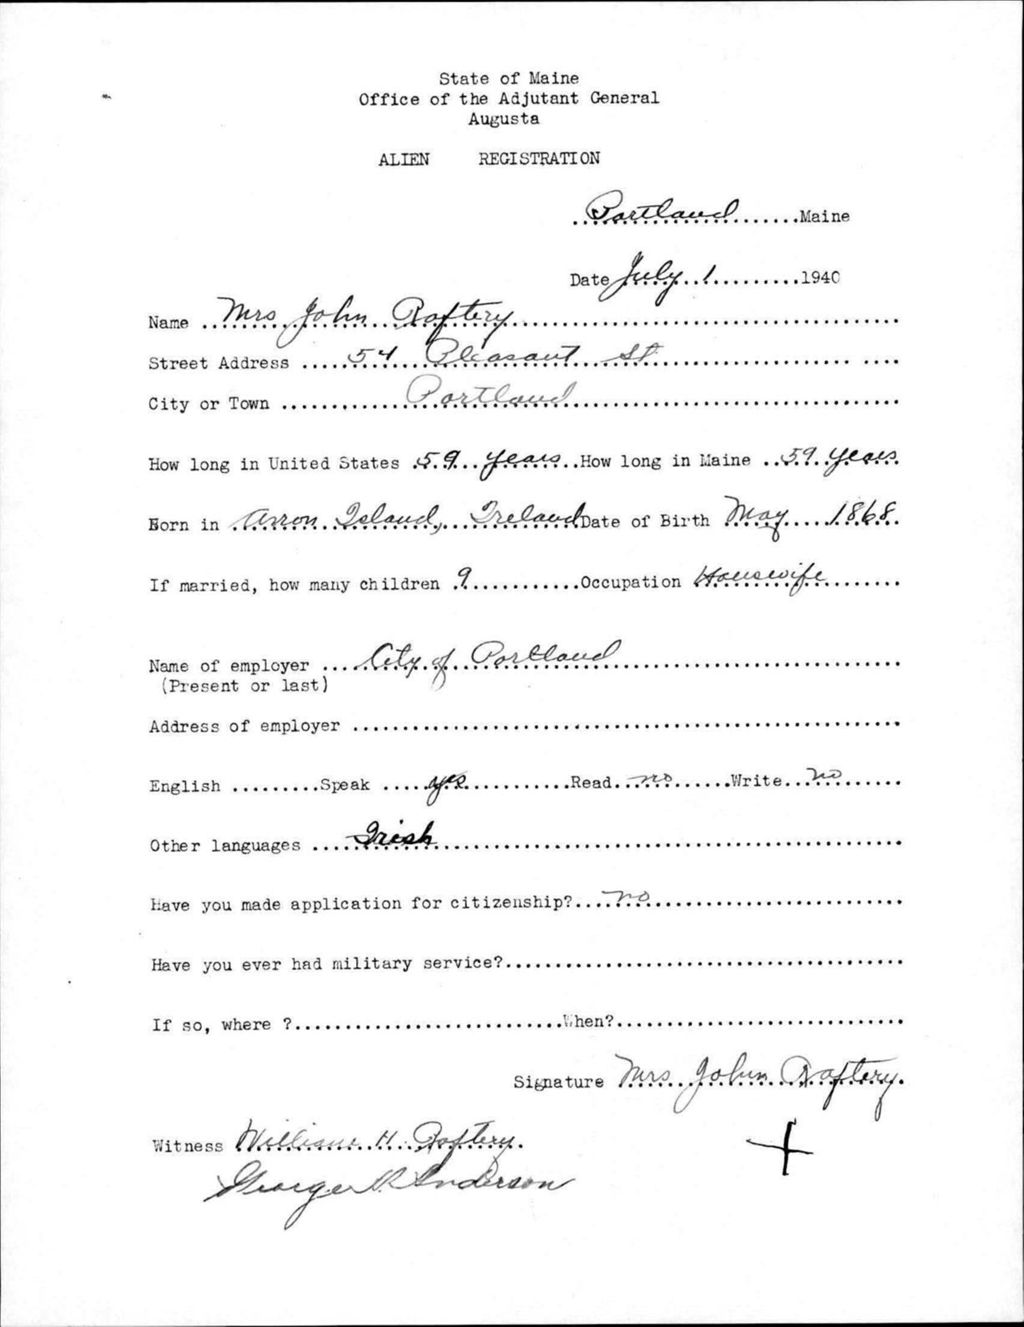 State of Maine
Office of the Adjutant General
Augusta
ALIEN REGISTRATION
Portland Maine
Date July 1 1940
Name Mrs John Raftery
Street Address 54 Pleasant St
City or Town Portland
How long in United States 59 years How long in Maine 59 years
Born in Arron Island, Ireland Date of Birth May 1868
If married, how many children 9 Occupation Housewife
Name of employer City of Portland
(Present or last)
Address of employer
English Speak yes Read no Write no
Other languages Irish
Have you made application for citizenship? no
Have you ever had military service?
If so, where ? When?
Signature Mrs John Raftery
Witness William H. Raftery +
George Anderson